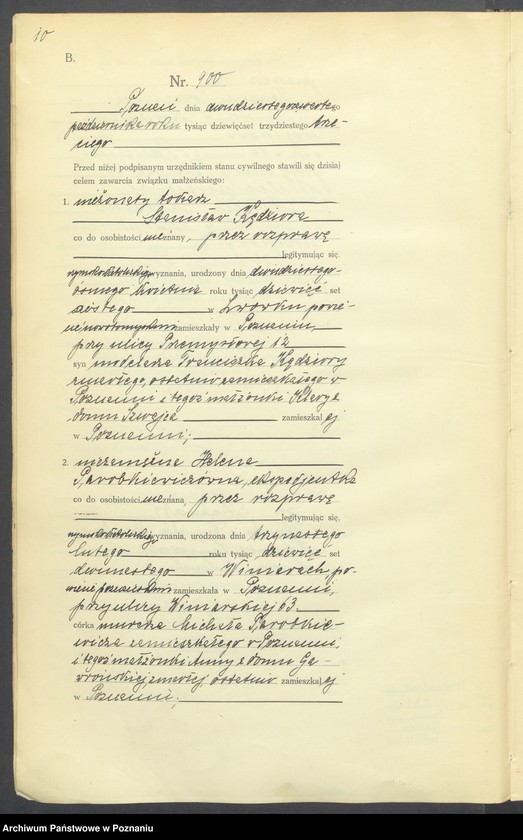 10
B.
Nr. 900
Poznań dnia dwudziestego szóstego
października roku tysiąc dziewięćset trzydziestego trze-
ciego
Przed niżej podpisanym urzędnikiem stanu cywilnego stawili się dzisiaj
celem zawarcia związku małżeńskiego:
1. nieżonaty tokarz
Stanisław Kędziora
co do osobistości nieznany, przez rozprawę
legitymując się
rzymskokatolickiego wyznania, urodzony dnia dwudziestego-
ósmego kwietnia roku tysiąc dziewięć set
szóstego w Lwówku powie-
cie nowotomyskim zamieszkały w Poznaniu,
przy ulicy Przemysłowej 12
syn modelarza Franciszka Kędziory
zmarłego, ostatnio zamieszkałego w
Poznaniu i tegoż małżonki Klary z
domu Szwejca zamieszkał ej
w Poznaniu;
2. niezamężna Helena
Parobkiewiczówna, ekspedjentka
co do osobistości nieznana, przez rozprawę
legitymując się,
rzymskokatolickiego wyznania, urodzona dnia trzynastego
lutego roku tysiąc dziewięć set
dwunastego w Winiarach po-
wiecie poznańskim zamieszkała w Poznaniu,
przy ulicy Winiarskiej 63
córka murarza Michała Parobkie-
wicza zamieszkałego w Poznaniu,
i tegoż małżonki Anny z domu Ga-
wrońskiej zmarłej, ostatnio zamieszkał ej
w Poznaniu;
Archiwum Państwowe w Poznaniu